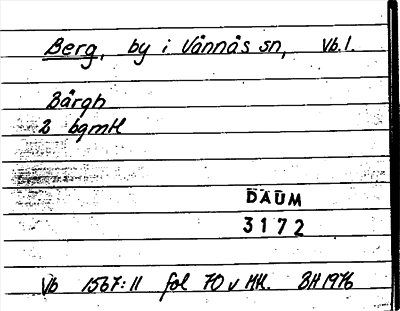 Berg, by i Vännäs sn, Vb.l.
Bärgh
2 bgmtl
DAUM
3172
Vb 1567:11 fol 70 v MH. BH 1976